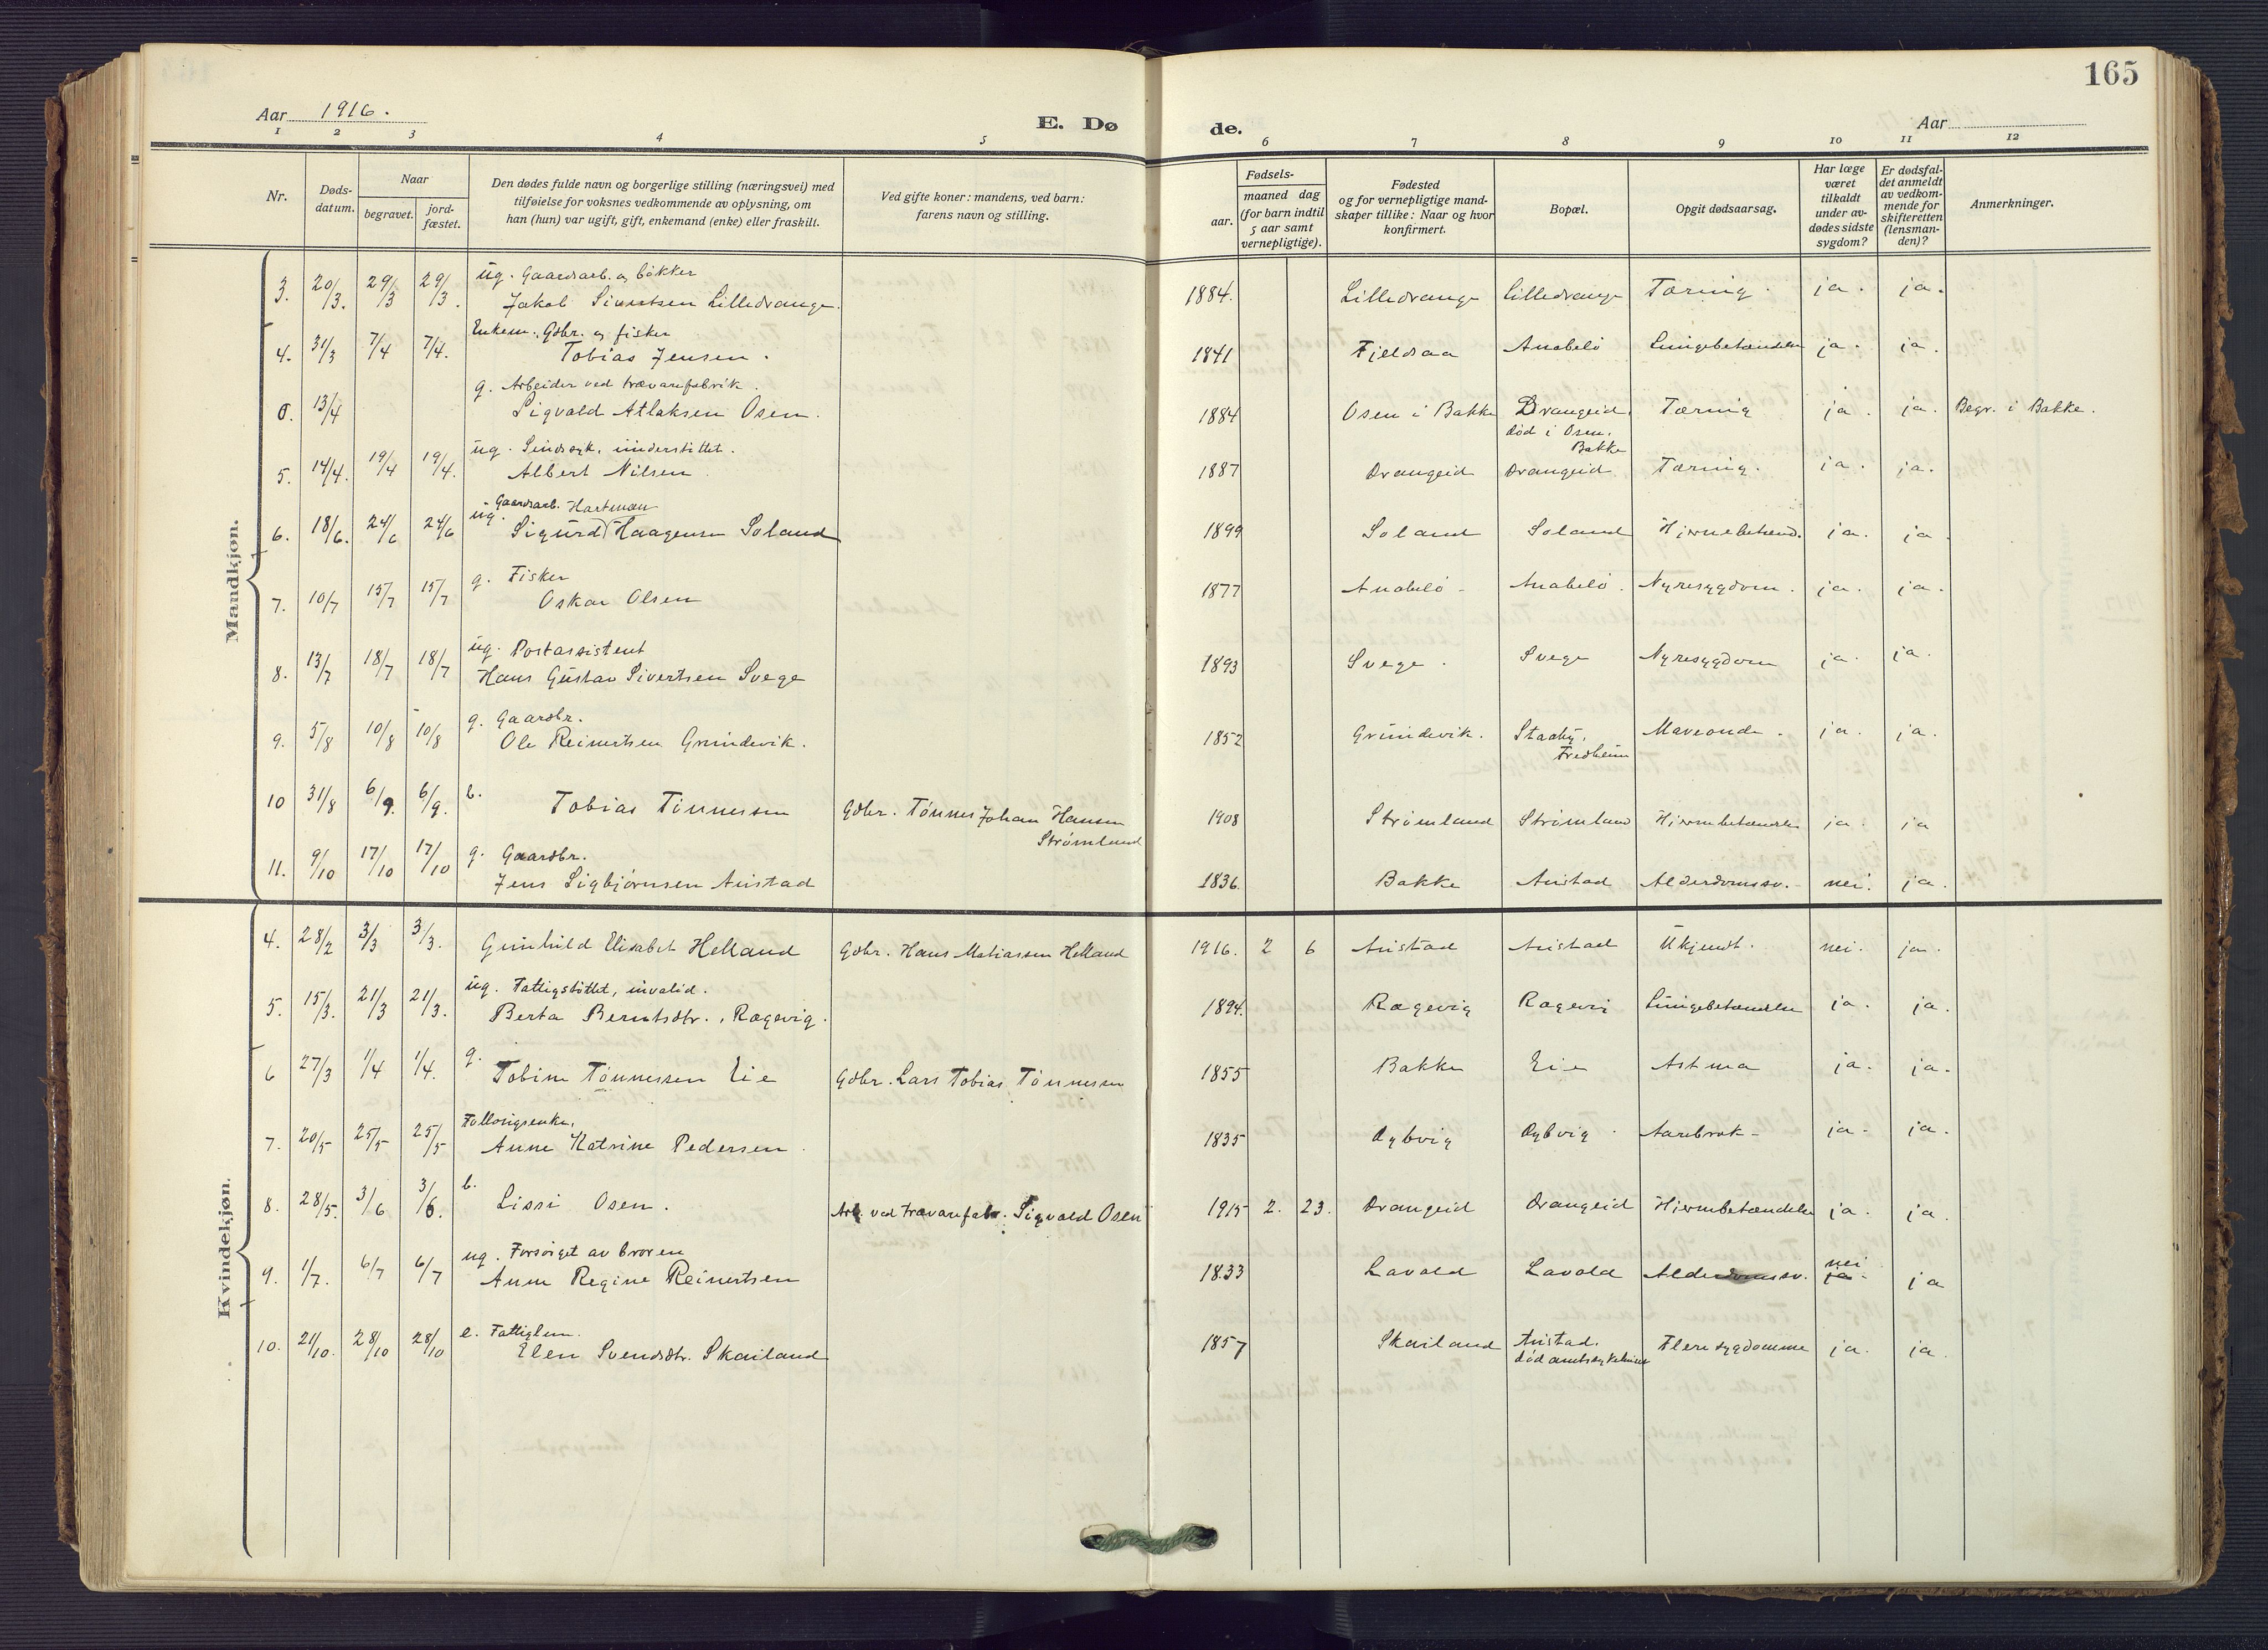 165
Aar 1916.
E. Dø de.
Aar
1 2 3 4 5 6 7 8 9 10 11 12
Nr.
Døds-datum.
Naar
begravet.
jord-fæstet.
Den dødes fulde navn og borgerlige stilling (næringsvei) med
tilføielse for voksnes vedkommende av oplysning, om
han (hun) var ugift, gift, enkemand (enke) eller fraskilt.
Ved gifte koner: mandens, ved barn:
farens navn og stilling.
Fødsels-
aar.
maaned dag
(for barn indtil
5 aar samt
vernepligtige).
Fødested
og for vernepligtige mand-
skaper tillike: Naar og hvor
konfirmert.
Bopæl.
Opgit dødsaarsag.
Har læge
været
tilkaldt
under av-
dødes sidste
sygdom?
Er dødsfal-
det anmeldt
av vedkom-
mende for
skifteretten
(lensman-
den)?
Anmerkninger.
Mandkjøn.
ug. Gaardsarb. og bøkker
3. 20/3. 29/3 29/3. Jakob Sivertsen Lilledrange. 1884. Lilledrange Lilledrange Tæring. ja. ja.
Enkem. Gdbr. og fisker
4. 31/3 7/4 7/4. Tobias Jensen. 1841 Fjeldsaa Anabelø Lungebetændelse ja. ja.
g. Arbeider ved trævarefabrik.
0. 13/4 Sigvald Atlaksen Osen. 1884 Osen i Bakke Drangeid. Tæring ja. ja. Begr. i Bakke.
død i Osen.
Bakke
ug. Sindssyk, understøttet.
5. 14/4. 19/4 19/4. Albert Nilsen 1887 Drangeid Drangeid Tæring. ja. ja.
ug. Gaardsarb. Hartman
6. 18/6. 24/6 24/6 Sigurd Haagensen Soland 1899 Soland Soland Hjernebetænd. ja. ja
g. Fisker
7. 10/7 15/7 15/7 Oskar Olsen 1877 Anabelø Anabelø. Nyresygdom. ja. ja.
ug. Postassistent
8. 13/7 18/7 18/7 Hans Gustav Sivertsen Svege 1893 Svege. Svege Nyresygdom ja. ja.
g. Gaardbr.
9. 5/8 10/8 10/8 Ole Reinertsen Grundevik. 1852 Grundevik. Staaby, Maveonde. ja. ja.
Fredheim
10 31/8 6/9. 6/9. b. Tobias Tønnessen Gdbr. Tønnes Johan Hansen 1908 Strømland Strømland Hjernebetændelse ja. ja
Strømland
g. Gaardbr.
11. 9/10 17/10 17/10 Jens Sigbjørnsen Austad 1836. Bakke Austad Alderdomssv. nei. ja.
Kvindekjøn.
4. 28/2 3/3 3/3. Gunhild Elisabet Helland Gdbr. Hans Matiassen Helland 1916. 2 6 Austad Austad Ukjendt. nei. ja.
ug. Fattigstøttet, invalid.
5. 15/3. 21/3 21/3. Berta Berntsdtr. Rægevig. 1894. Rægevig Rægevig Lungebetændelse ja. ja.
g.
6 27/3 1/4 1/4. Tobine Tønnessen Eie Gdbr. Lars Tobias Tønnessen 1855 Bakke Eie Astma ja. ja.
Follougsenke.
7. 20/5 25/5 25/5 Anne Katrine Pedersen. 1835 Dybvig Dybvig. Aarebrok ja. ja.
8. 28/5. 3/6 3/6. b. Lissi Osen. Arb. ved trævarefabr. Sigvald Osen 1915 2. 23. Drangeid Drangeid Hjernebetændelse ja. ja.
ug. Forsørget av broren
9. 1/7. 6/7 6/7 Anne Regine Reinertsen 1833 Lavold Lavold Alderdomssv. nei ja. ja
e. Fattiglem.
10. 21/10. 28/10 28/10 Elen Svendsdtr. Skailand 1857 Skailand Austad. Flere sygdomme ja. ja
død amtssykehuset